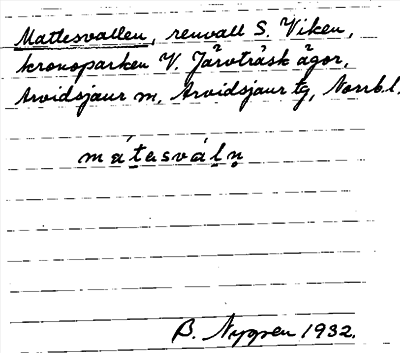 Mattesvallen, renvall S. Viken,
kronoparken V. Järvträsk ägor,
Arvidsjaur sn, Arvidsjaur tg, Norrb.l.
mátasválṇ
B. Nygren 1932.